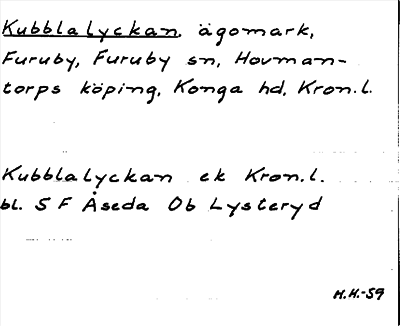 Kubblalyckan, ägomark,
Furuby, Furuby sn, Hovman-
torps köping, Konga hd, Kron.l.
Kubblalyckan ek Kron.l.
bl. 5 F Åseda Ob Lysteryd
H.H.-59